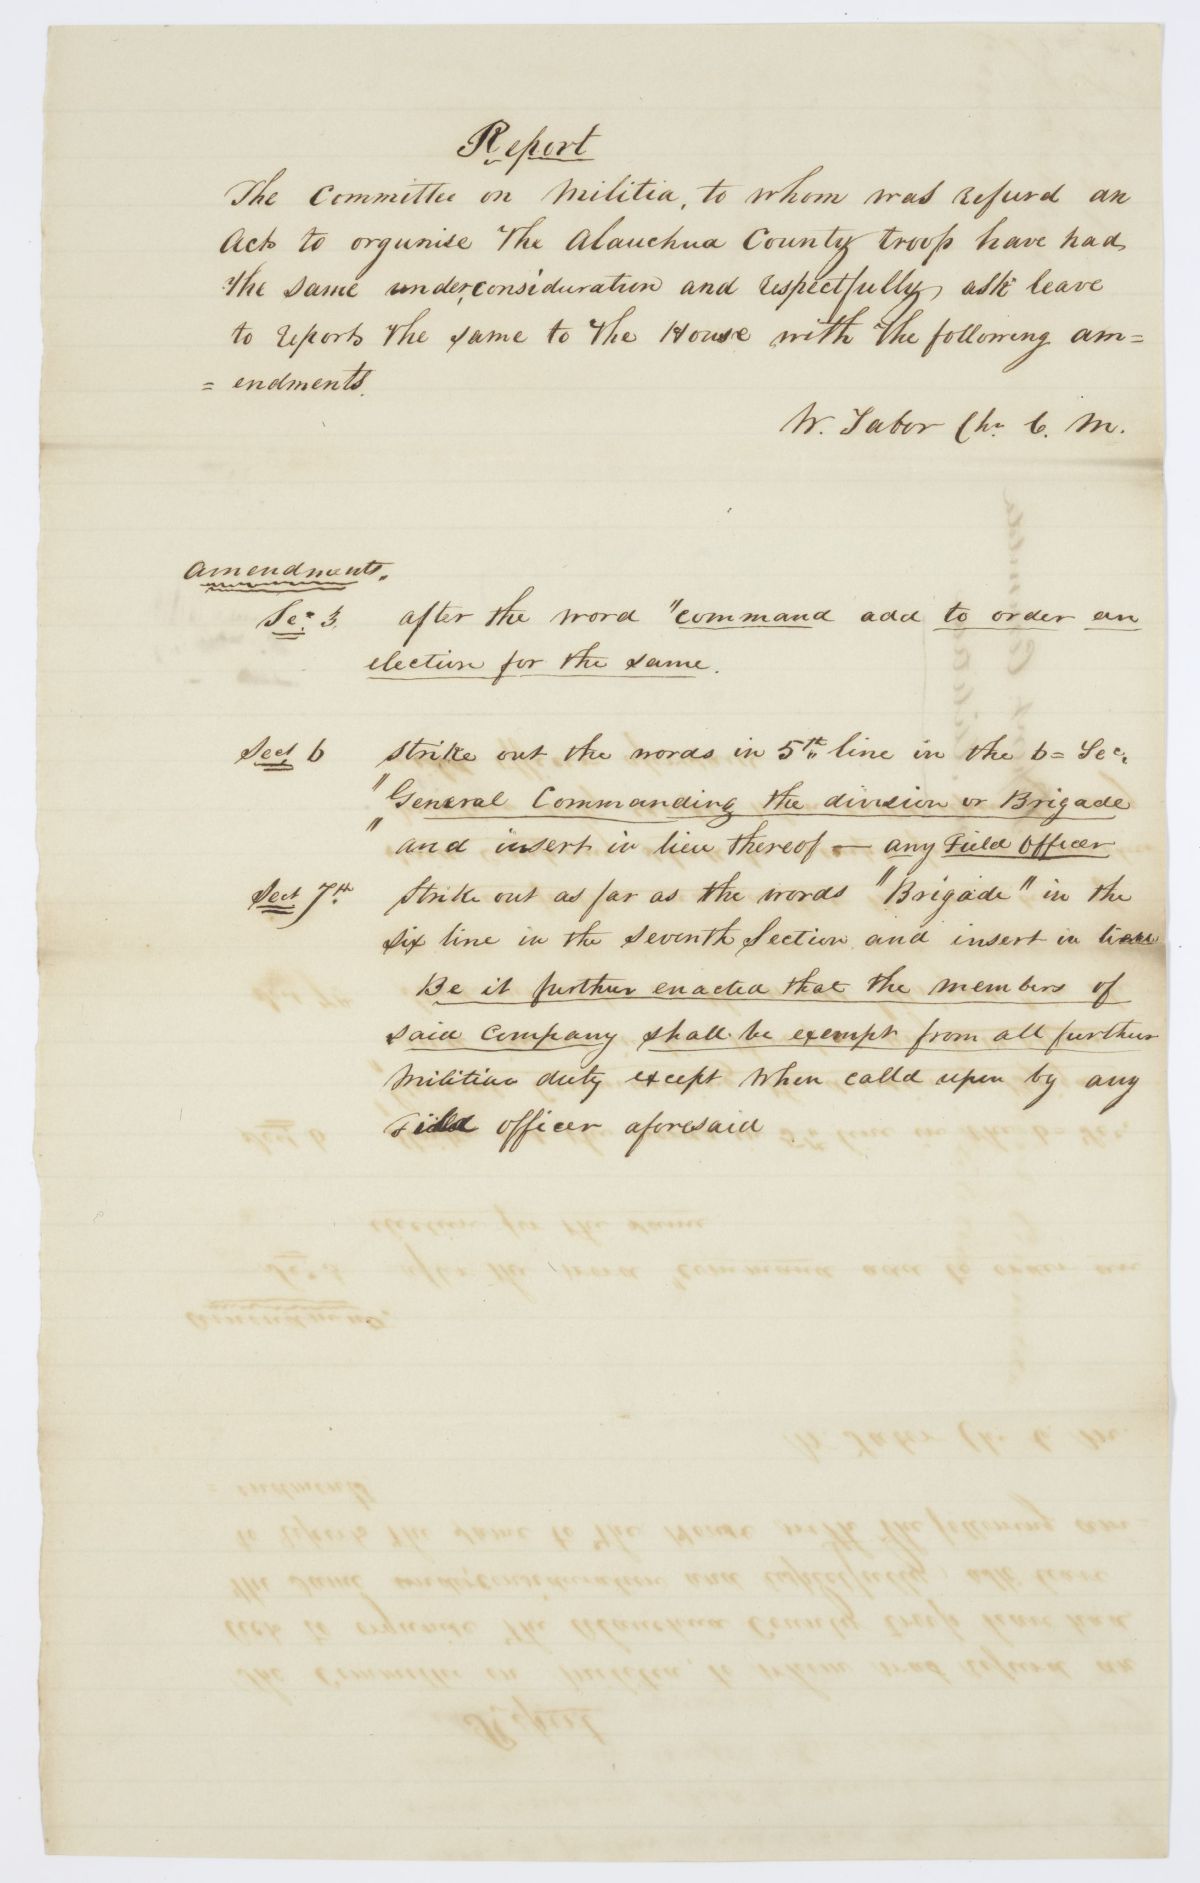 Report
The Committee on Militia, to whom was refurd an
Act to orgunise the Alauchua County troop have had
the same under consideration and respectfully ask leave
to report the same to the House with the following am=
= endments.
W. Tabor Chn C. M.
Amendments.
Sec 3. after the word "command add to order an
election for the same.
Sect 6 Strike out the words in 5th line in the 6= Sec.
"General Commanding the division or Brigade
" and insert in lieu thereof — any Field Officer
Sect 7th Strike out as far as the words "Brigade" in the
six line in the seventh Section and insert in lieu
Be it further enacted that the members of
said company shall be exempt from all further
Militia duty except when calld upon by any
Field officer aforesaid